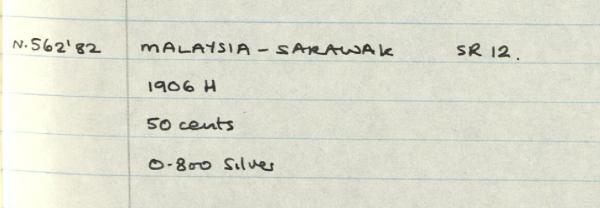 N.562'82 MALAYSIA - SARAWAK SR 12.
1906 H
50 cents
0.800 Silver